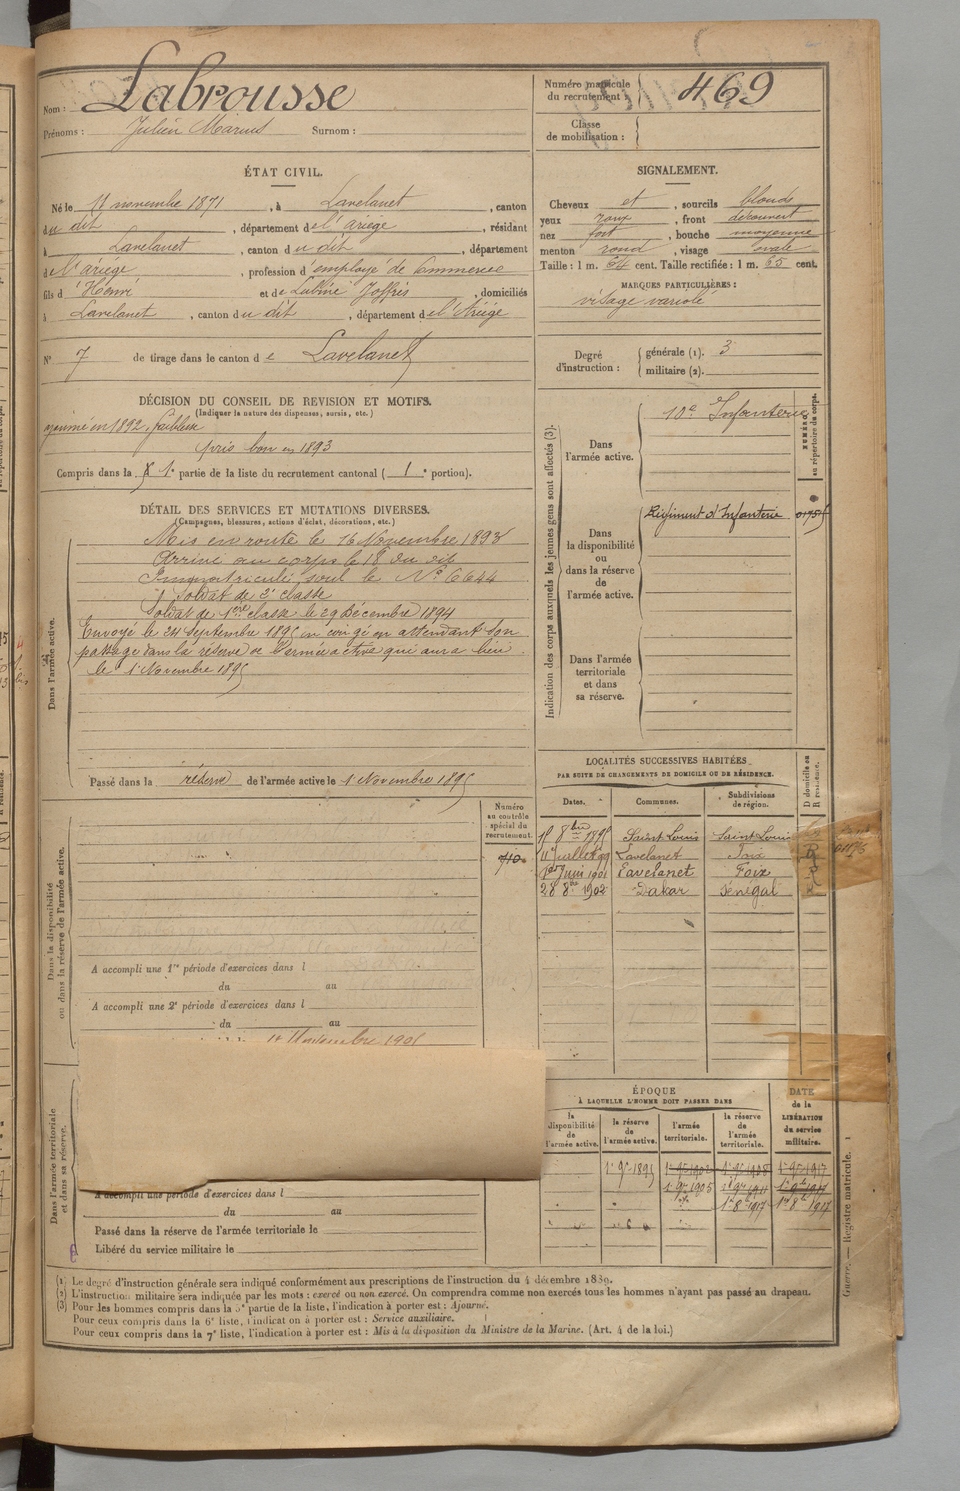 Nom : Labrousse
Prénoms : Julien Marius Surnom :
Numéro matricule du recrutement : 469
Classe de mobilisation :
ÉTAT CIVIL.
Né le 11 novembre 1871, à Lavelanet, canton
du dit, département de l'ariège, résidant
à Lavelanet, canton du dit, département
de l'ariège, profession d'employé de Commerce
fils d'Henri et de Joffrès, domiciliés
à Lavelanet, canton du dit, département de l'Ariège
N° 7 de tirage dans le canton de Lavelanet
SIGNALEMENT.
Cheveux et, sourcils blonds
yeux roux, front découvert
nez fort, bouche moyenne
menton rond, visage ovale
Taille : 1 m. 64 cent. Taille rectifiée : 1 m. 65 cent.
MARQUES PARTICULIÈRES :
visage variolé
Degré d'instruction : générale (1). 3
militaire (2).
DÉCISION DU CONSEIL DE REVISION ET MOTIFS.
(Indiquer la nature des dispenses, sursis, etc.)
ajourné en 1892, faiblesse
pris bon en 1893
Compris dans la 1e partie de la liste du recrutement cantonal (1e portion).
DÉTAIL DES SERVICES ET MUTATIONS DIVERSES.
(Campagnes, blessures, actions d'éclat, décorations, etc.)
Dans l'armée active.
Mis en route le 16 Novembre 1893
Arrivé au corps le 18 du dit
Immatriculé sous le N° 6644
Soldat de 2e classe
Soldat de 1ere classe le 29 Décembre 1894
Envoyé le 24 Septembre 1895 en congé en attendant son
passage dans la réserve de l'armée active qui aura lieu
le 1 Novembre 1895
Passé dans la réserve de l'armée active le 1 Novembre 1895
Indication des corps auxquels les jeunes gens sont affectés (3).
NUMÉRO au répertoire du corps.
Dans l'armée active.
10e Infanterie
Dans la disponibilité ou dans la réserve de l'armée active.
Régiment d'Infanterie
Dans l'armée territoriale et dans sa réserve.
LOCALITÉS SUCCESSIVES HABITÉES
PAR SUITE DE CHANGEMENTS DE DOMICILE OU DE RÉSIDENCE.
Dates. Communes. Subdivisions de région. D domicile ou R résidence.
15 8bre 1895 Saint Louis Saint Louis
11 Juillet 99 Lavelanet Foix
Juin 1901 Lavelanet Foix R
28 8bre 1902 Dakar Sénégal R
Numéro au contrôle spécial du recrutement.
710
Dans la disponibilité ou dans la réserve de l'armée active.
A accompli une 1re période d'exercices dans l
du au
A accompli une 2e période d'exercices dans l
du au
Novembre 1905
Dans l'armée territoriale et dans sa réserve.
A accompli une période d'exercices dans l
du au
Passé dans la réserve de l'armée territoriale le
Libéré du service militaire le
ÉPOQUE
À LAQUELLE L'HOMME DOIT PASSER DANS
la disponibilité de l'armée active. la réserve de l'armée active. l'armée territoriale. la réserve de l'armée territoriale. DATE de la LIBÉRATION du service militaire.
1 9bre 1895
1 9bre 1905
1er 8bre 1917
(1) Le degré d'instruction générale sera indiqué conformément aux prescriptions de l'instruction du 4 décembre 1889.
(2) L'instruction militaire sera indiquée par les mots : exercé ou non exercé. On comprendra comme non exercés tous les hommes n'ayant pas passé au drapeau.
(3) Pour les hommes compris dans la 5e partie de la liste, l'indication à porter est : Ajourné.
Pour ceux compris dans la 6e liste, l'indication à porter est : Service auxiliaire.
Pour ceux compris dans la 7e liste, l'indication à porter est : Mis à la disposition du Ministre de la Marine. (Art. 4 de la loi.)
Guerre. — Registre matricule. 1